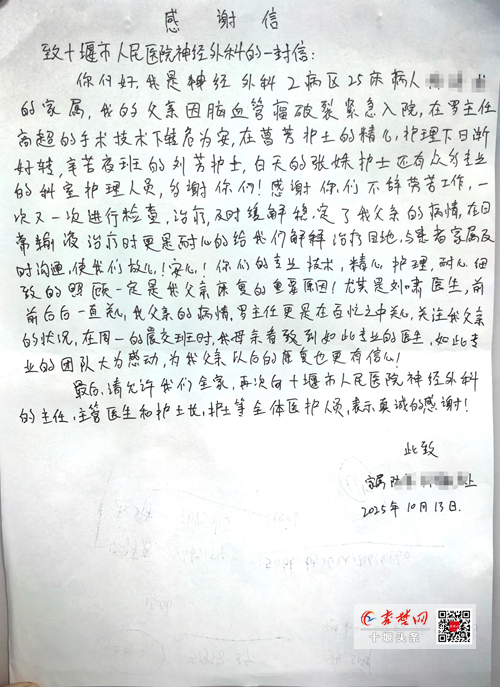 感谢信
致十堰市人民医院神经外科的一封信:
你们好,我是神经外科2病区25床病人
的家属,我的父亲因脑血管瘤破裂紧急入院,在罗主任
高超的手术技术下转危为安,在葛芳护士的精心护理下日渐
好转,辛苦夜班的刘芳护士,白天的张姝护士还有众多专业
的科室护理人员,多谢你们!感谢你们不辞劳苦工作,一
次又一次进行检查,治疗,及时缓解稳定了我父亲的病情,在日
常输液治疗时更是耐心的给我们解释治疗目地,与患者家属及
时沟通,使我们放心!安心!你们的专业技术,精心护理,耐心细
致的照顾一定是我父亲康复的重要原因!尤其是刘啸医生,前
前后后一直关心我父亲的病情,罗主任更是在百忙之中关心,关注我父亲
的状况,在周一的晨交班时,我母亲看致到如此专业的医生,如此专
业的团队大为感动,为我父亲以后的康复也更有信心!
最后,请允许我们全家,再次向十堰市人民医院神经外科
的主任,主管医生和护士长,护士等全体医护人员,表示真诚的感谢!
此致
家属
上
2025年10月13日.
秦楚网
十堰头条